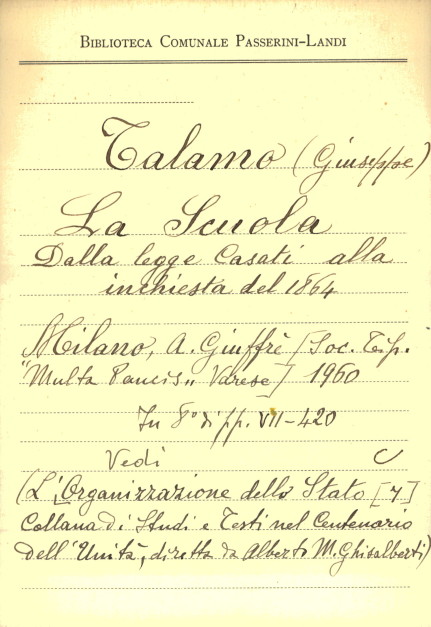 BIBLIOTECA COMUNALE PASSERINI-LANDI
Talamo (Giuseppe)
La Scuola
Dalla legge Casati alla
inchiesta del 1864
Milano, A. Giuffrè [Soc. Tip.
"Multa Paucis„ Varese] 1960
In 8° di pp. VII-420
Vedi C
(L'Organizzazione dello Stato [4]
Collana di Studi e Testi nel Centenario
dell'Unità, diretta da Alberto M. Ghisalberti)